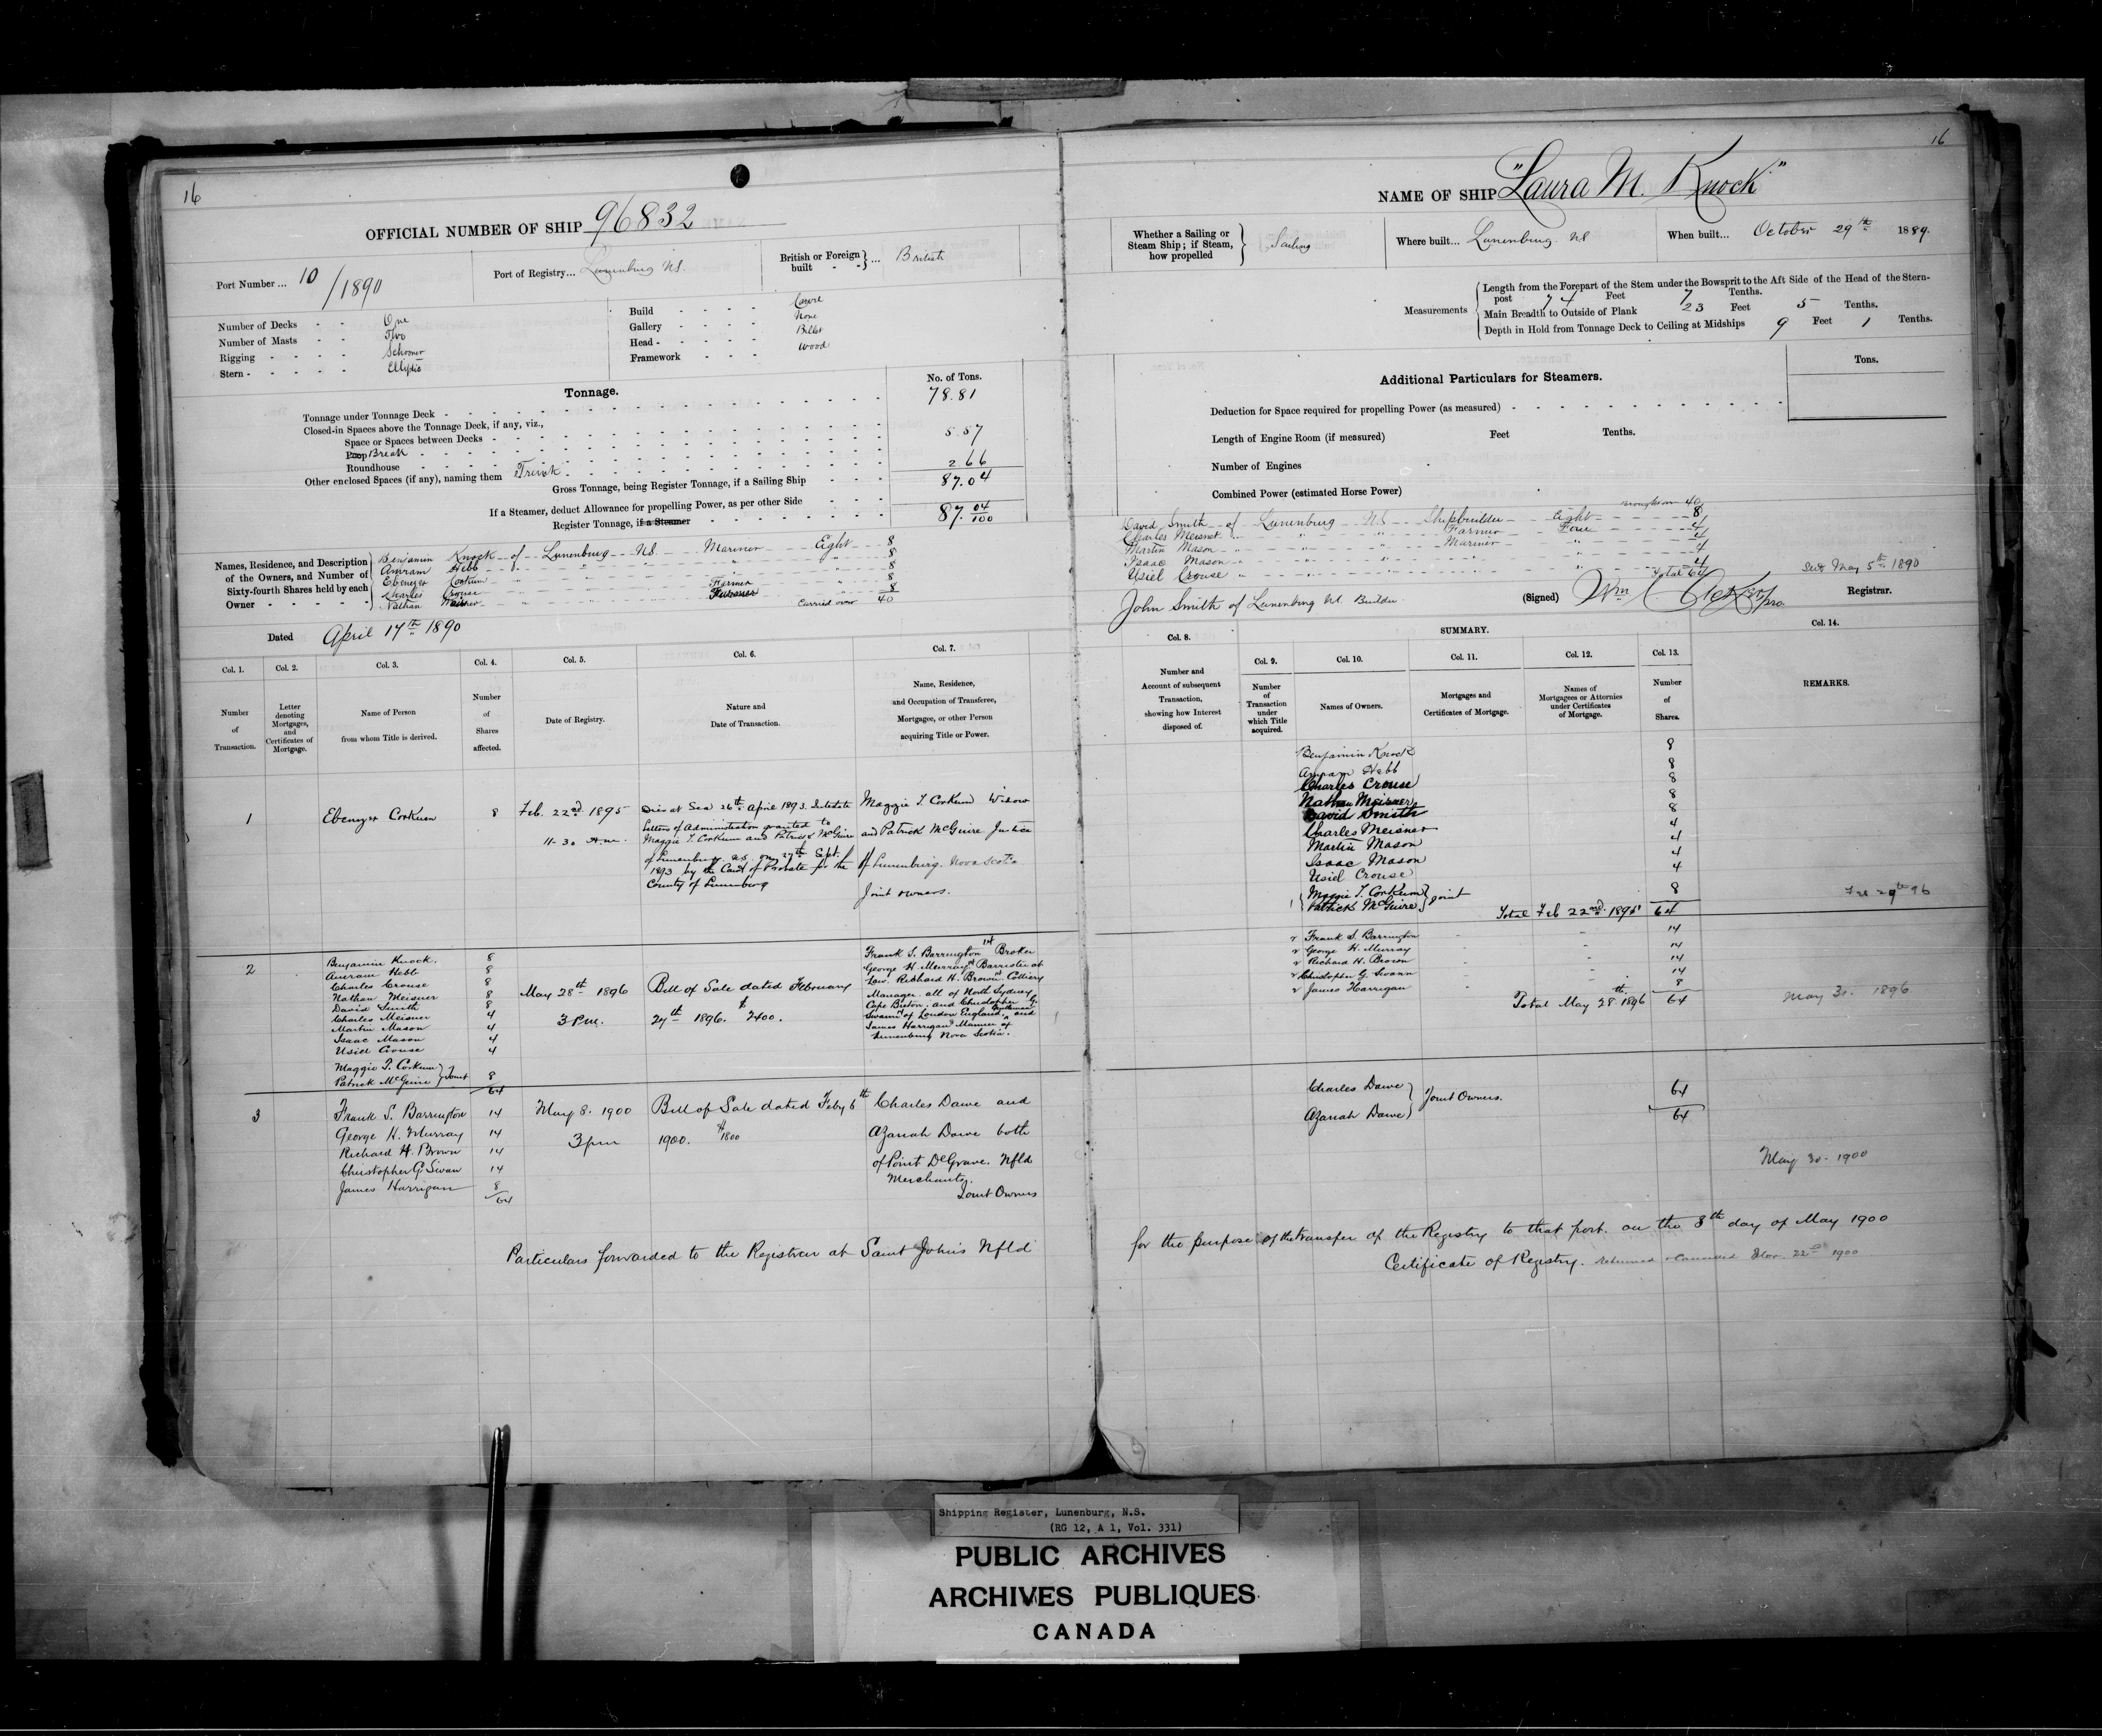 16
OFFICIAL NUMBER OF SHIP 96832
Port Number ... 10/1890
Port of Registry... Lunenburg N.S.
British or Foreign built } ... British
Number of Decks - - One
Number of Masts - - Two
Rigging - - - - Schooner
Stern - - - - - Elliptic
Build - - - - Carvel
Gallery - - - - None
Head - - - - - Billet
Framework - - - Wood
Tonnage.
No. of Tons.
Tonnage under Tonnage Deck - 78.81
Closed-in Spaces above the Tonnage Deck, if any, viz.,
Space or Spaces between Decks -
Poop Break - 5.57
Roundhouse
Other enclosed Spaces (if any), naming them Trunk - 2.66
Gross Tonnage, being Register Tonnage, if a Sailing Ship - - - 87.04
If a Steamer, deduct Allowance for propelling Power, as per other Side - - -
Register Tonnage, if a Steamer 87. 04/100
Names, Residence, and Description of the Owners, and Number of Sixty-fourth Shares held by each Owner - - - - -
Benjamin Knock of Lunenburg N.S. Mariner Eight 8
Amram Hebb " " " " 8
Ebenezer Corkum " " " " 8
Charles Crouse Farmer " 8
Nathan Meisner Farmer 8
Carried over 40
Dated April 17th 1890
Col. 1. Col. 2. Col. 3. Col. 4. Col. 5. Col. 6. Col. 7.
Number of Transaction.
Letter denoting Mortgages, and Certificates of Mortgage.
Name of Person from whom Title is derived.
Number of Shares affected.
Date of Registry.
Nature and Date of Transaction.
Name, Residence, and Occupation of Transferee, Mortgagee, or other Person acquiring Title or Power.
1
Ebenezer Corkum
8
Feb. 22nd 1895
11-30 A.m.
Died at Sea 26th April 1893. Intestate
Letters of Administration granted to
Maggie T. Corkum and Patrick McGuire
of Lunenburg N.S. on 27th Sept.
1893 by the Court of Probate for the
County of Lunenburg
Maggie T. Corkum Widow
and Patrick McGuire Justice
of Lunenburg. Nova Scotia
Joint owners.
2
Benjamin Knock. 8
Amram Hebb 8
Charles Crouse 8
Nathan Meisner 8
David Smith 8
Charles Meisner 4
Martin Mason 4
Isaac Mason 4
Usiel Crouse 4
Maggie T. Corkum
Patrick McGuire } Joint 8
64
May 28th 1896
3 P.m.
Bill of Sale dated February
27th 1896. $2400.
Frank S. Barrington 14 Broker
George H. Murray 14 Barrister at
Law. Richard H. Brown 14 Colliery
Manager. all of North Sydney
Cape Breton. and Christopher G.
Swann of London England. Gentleman and
James Harrigan Mariner of
Lunenburg Nova Scotia.
3
Frank S. Barrington 14
George H. Murray 14
Richard H. Brown 14
Christopher G Swan 14
James Harrigan 8
64
May 8. 1900
3 pm
Bill of Sale dated Feby 6th
1900. $1800
Charles Dawe and
Azariah Dawe both
of Point De Grave. Nfld
Merchants.
Joint Owners
Particulars forwarded to the Registrar at Saint Johns Nfld
16
NAME OF SHIP "Laura M. Knock"
Whether a Sailing or Steam Ship; if Steam, how propelled } Sailing
Where built... Lunenburg. N.S
When built... October 29th 1889.
Measurements
Length from the Forepart of the Stem under the Bowsprit to the Aft Side of the Head of the Stern-
post 74 Feet 7 Tenths.
Main Breadth to Outside of Plank 23 Feet 5 Tenths.
Depth in Hold from Tonnage Deck to Ceiling at Midships 9 Feet 1 Tenths.
Additional Particulars for Steamers.
Tons.
Deduction for Space required for propelling Power (as measured) -
Length of Engine Room (if measured) Feet Tenths.
Number of Engines
Combined Power (estimated Horse Power)
Brought over 40
David Smith of Lunenburg N.S. Shipbuilder Eight 8
Charles Meisner " " " Farmer Four 4
Martin Mason " " " Mariner " 4
Isaac Mason " " " " 4
Usiel Crouse " " 4
Total 64
John Smith of Lunenburg N.S. Builder
(Signed) Wm
Registrar.
May 5th 1890
SUMMARY.
Col. 8. Col. 9. Col. 10. Col. 11. Col. 12. Col. 13. Col. 14.
Number and Account of subsequent Transaction, showing how Interest disposed of.
Number of Transaction under which Title acquired.
Names of Owners.
Mortgages and Certificates of Mortgage.
Names of Mortgagees or Attornies under Certificates of Mortgage.
Number of Shares.
REMARKS.
Benjamin Knock 8
Amram Hebb 8
Charles Crouse 8
Nathan Meisner 8
David Smith 8
Charles Meisner 4
Martin Mason 4
Isaac Mason 4
Usiel Crouse 4
1 { Maggie T. Corkum
Patrick McGuire } joint 8
Total Feb 22nd. 1895 64
Feb 29th 96
2 Frank S. Barrington 14
2 George H. Murray 14
2 Richard H. Brown 14
2 Christopher G. Swann 14
2 James Harrigan 8
Total May 28th. 1896 64
May 30. 1896
Charles Dawe
Azariah Dawe } Joint Owners. 64
64
May 30. 1900
for the purpose of the transfer of the Registry to that port. on the 8th day of May 1900
Certificate of Registry. returned & cancelled Nov. 22nd 1900
Shipping Register, Lunenburg, N.S.
(RG 12, A 1, Vol. 331)
PUBLIC ARCHIVES
ARCHIVES PUBLIQUES
CANADA